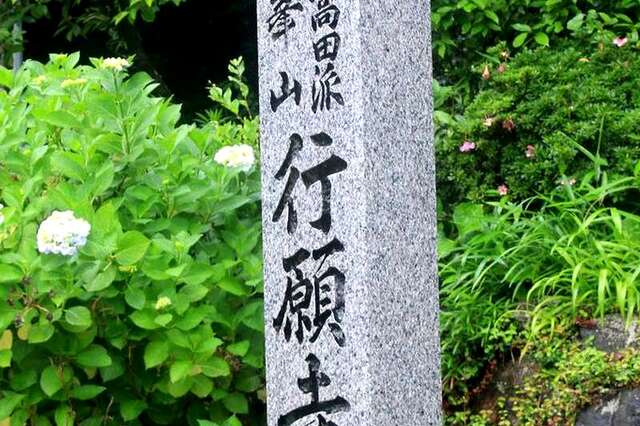 高田派
峯山
行願寺